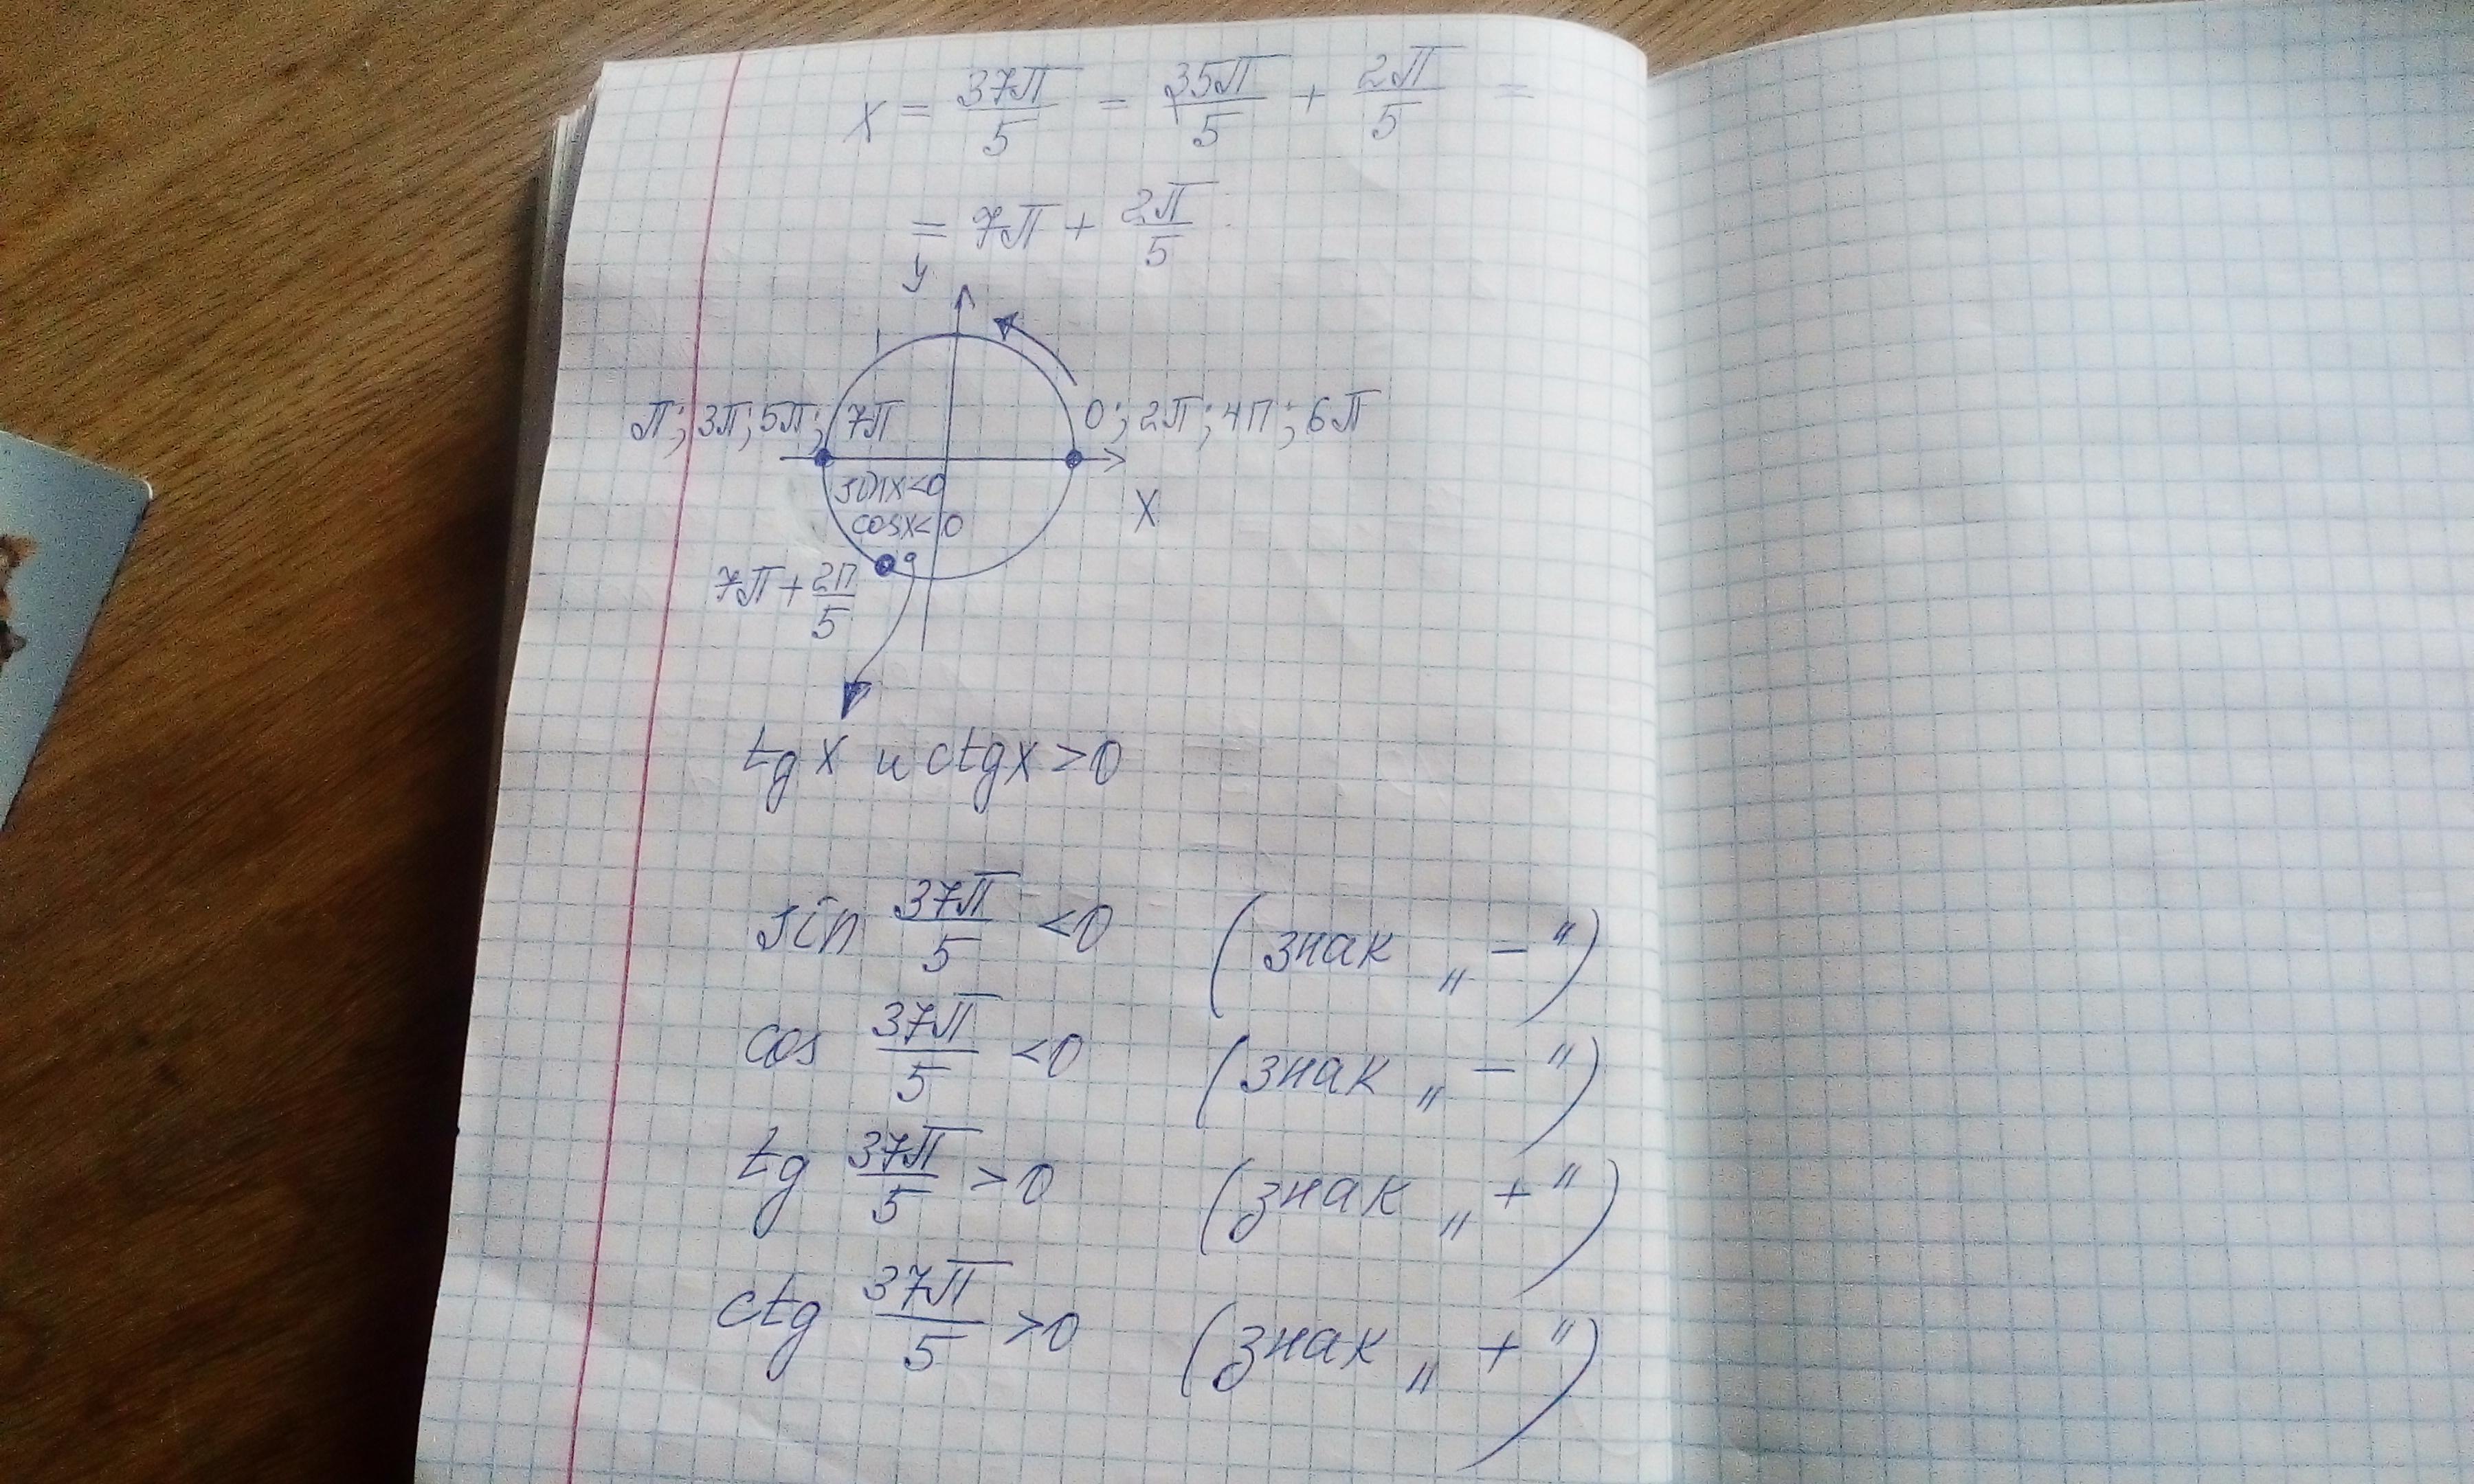 x = 37π/5 = 35π/5 + 2π/5 =
= 7π + 2π/5
y
π; 3π; 5π; 7π
0; 2π; 4π; 6π
sinx<0
cosx<0
x
7π + 2π/5
tgx и ctgx>0
sin 37π/5 <0 (знак „ − “)
cos 37π/5 <0 (знак „ − “)
tg 37π/5 >0 (знак „ + “)
ctg 37π/5 >0 (знак „ + “)